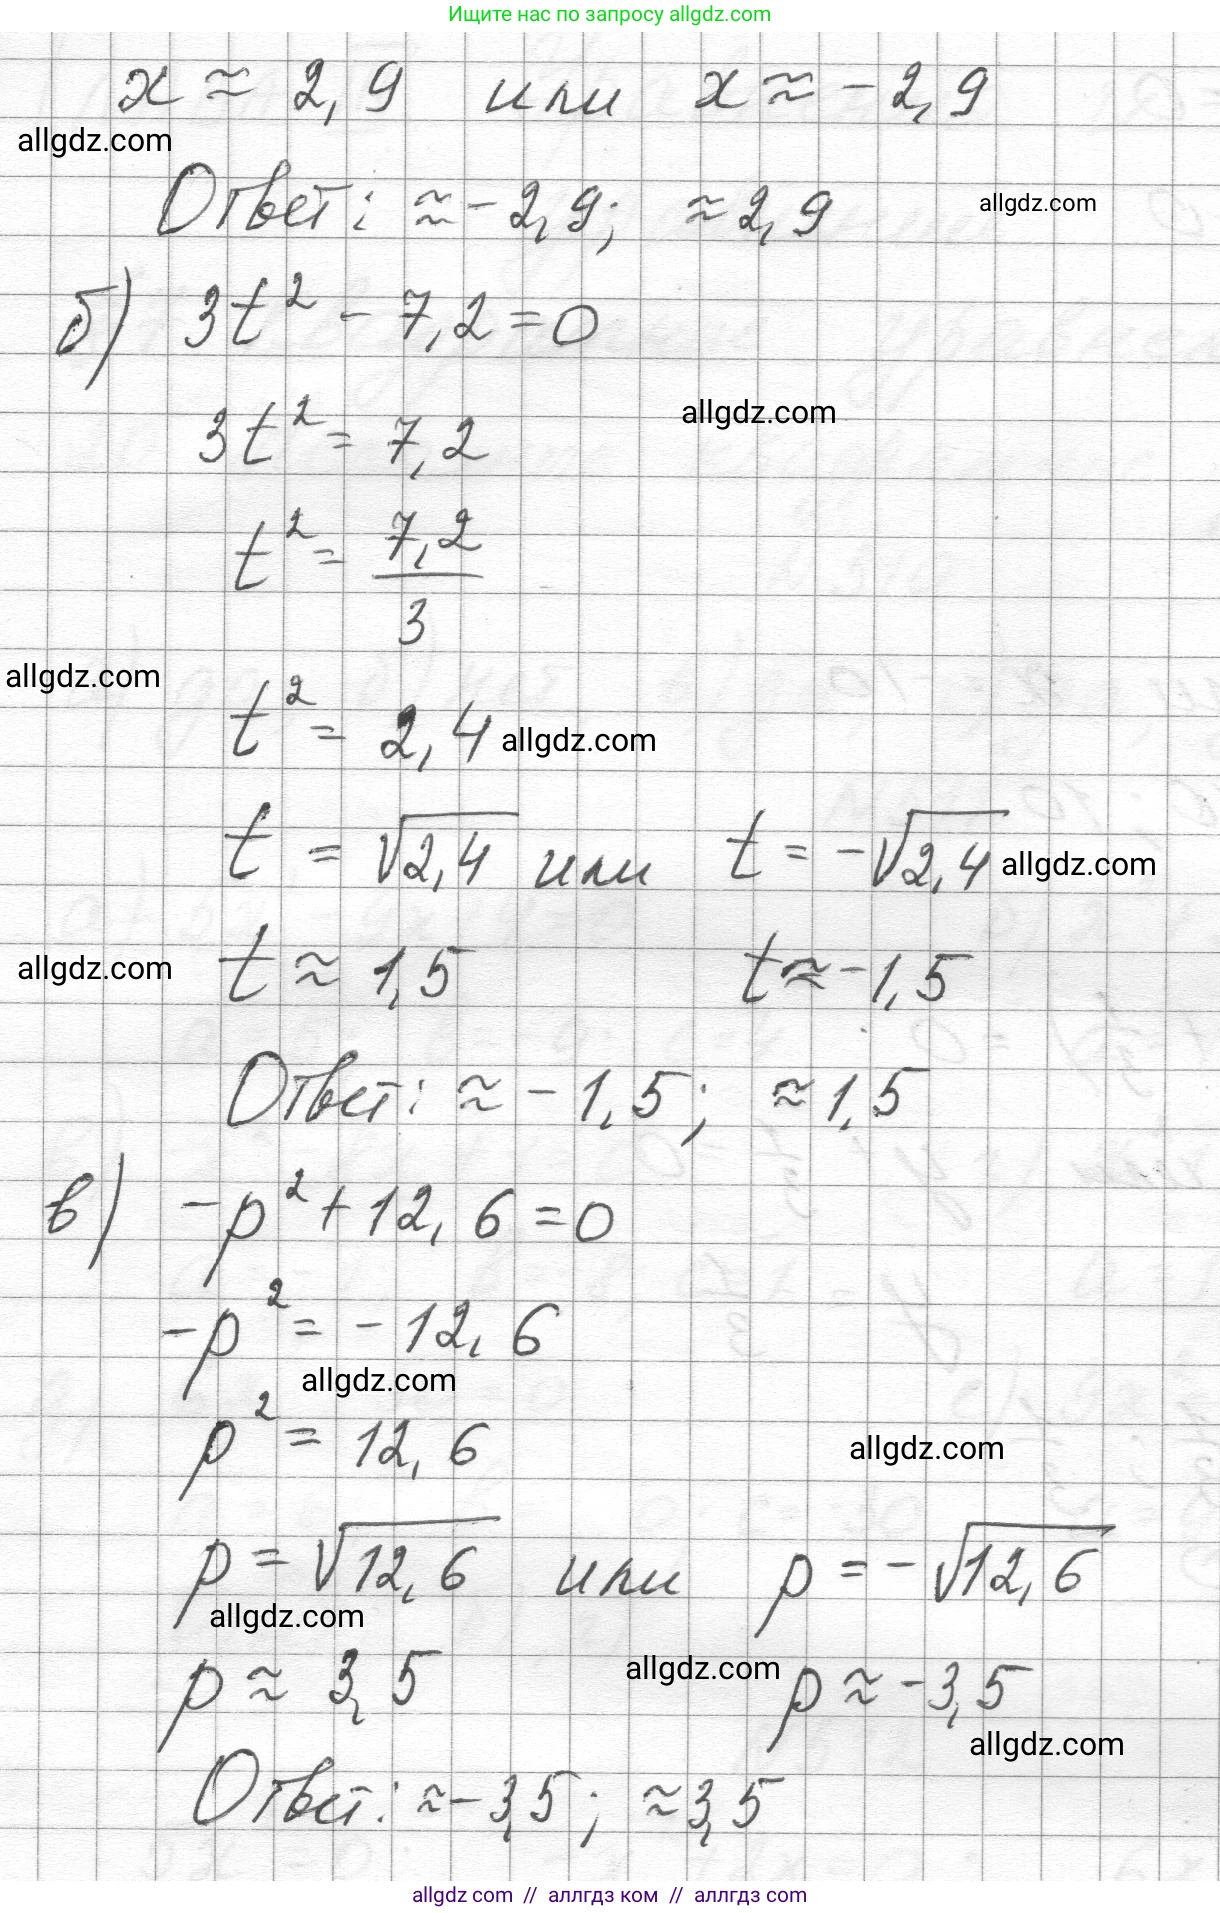 Ищите нас по запросу allgdz.com
x ≈ 2,9 или x ≈ -2,9
allgdz.com
Ответ: ≈ -2,9; ≈ 2,9
allgdz.com
б) 3t² - 7,2 = 0
allgdz.com
3t² = 7,2
t² = 7,2/3
allgdz.com
t² = 2,4 allgdz.com
t = √2,4 или t = -√2,4 allgdz.com
allgdz.com t ≈ 1,5 t ≈ -1,5
Ответ: ≈ -1,5; ≈ 1,5
в) -p² + 12,6 = 0
-p² = -12,6
allgdz.com
p² = 12,6
allgdz.com
p = √12,6 или p = -√12,6
allgdz.com
p ≈ 3,5 allgdz.com p ≈ -3,5
allgdz.com
Ответ: ≈ -3,5; ≈ 3,5
allgdz com // аллгдз ком // аллгтз com